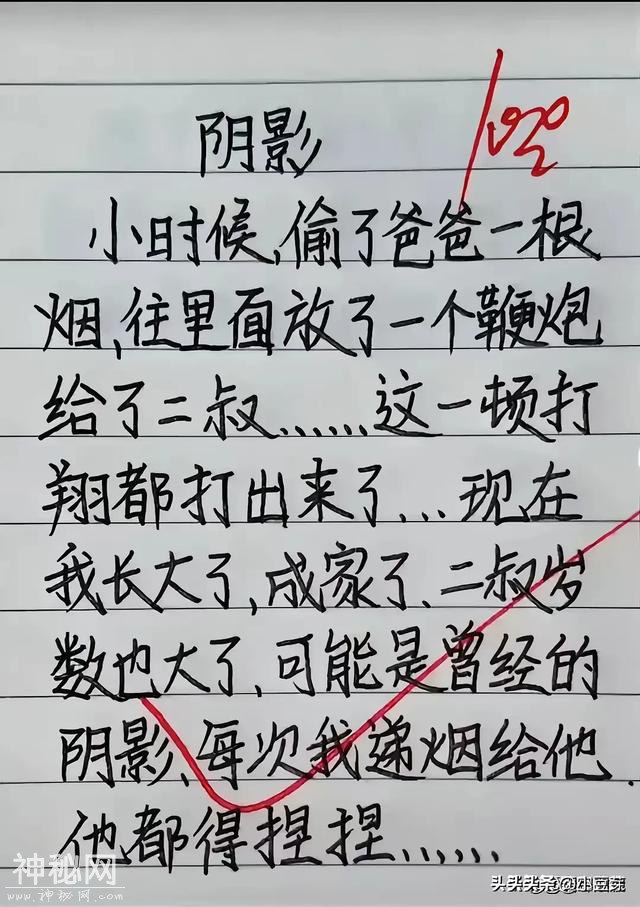 阴影
100
小时候,偷了爸爸一根
烟,往里面放了一个鞭炮
给了二叔......这一顿打
翔都打出来了...现在
我长大了,成家了、二叔岁
数也大了,可能是曾经的
阴影、每次我递烟给他.
他都得捏捏......
神秘网
WWW.SHENMIW.COM